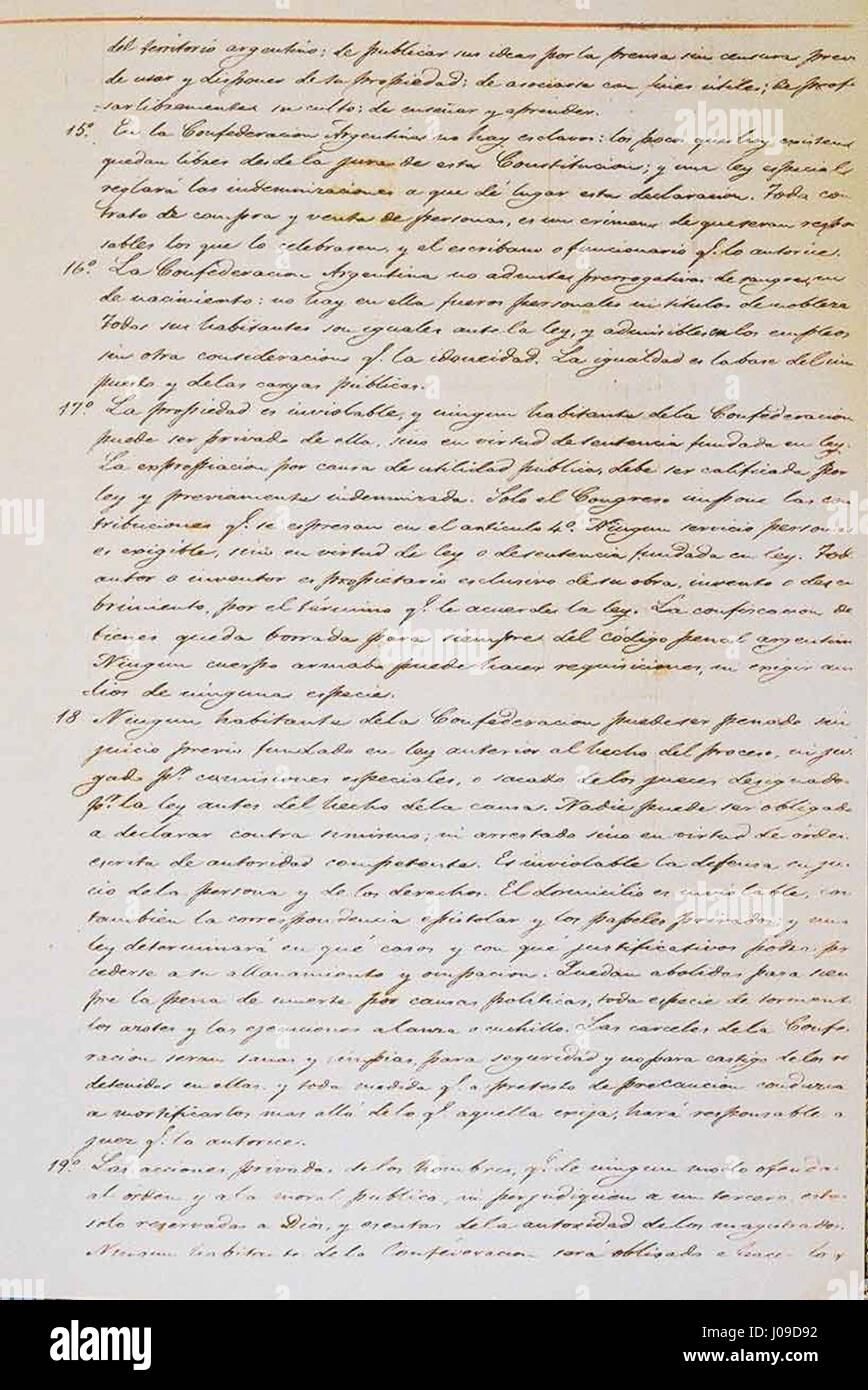 del territorio argentino: de publicar sus ideas por la prensa sin censura prev
de usar y disponer de su propiedad: de asociarse con fines útiles; de prof
sar libremente su culto: de enseñar y aprender.
15.º En la Confederacion Argentina no hay esclavos: los pocos que hoy existen
quedan libres desde la jura de esta Constitucion; y una ley especial
reglará las indemnizaciones a que dé lugar esta declaracion. Todo con
trato de compra y venta de personas, es un crímen de que seran respon
sables los que lo celebrasen, y el escribano o funcionario q.e lo autorice.
16.º La Confederacion Argentina no admite prerrogativas de sangre, ni
de nacimiento: no hay en ella fueros personales ni titulos de nobleza
Todos sus habitantes son iguales ante la ley, y admisibles en los empleos
sin otra consideracion q.e la idoneidad. La igualdad es la base del im
puesto y de las cargas públicas.
17.º La propiedad es inviolable, y ningun habitante de la Confederacion
puede ser privado de ella, sino en virtud de sentencia fundada en ley.
La expropiacion por causa de utilidad pública, debe ser calificada por
ley y previamente indemnizada. Solo el Congreso impone las con
tribuciones q.e se espresan en el artículo 4.º Ningun servicio persona
es exigible, sino en virtud de ley o de sentencia fundada en ley. Tod
autor o inventor es propietario esclusivo de su obra, invento o descu
brimiento, por el término q.e le acuerde la ley. La confiscacion de
bienes queda borrada para siempre del código penal argentin
Ningun cuerpo armado puede hacer requisiciones, ni exigir auxi
lios de ninguna especie.
18 Ningun habitante de la Confederacion puede ser penado sin
juicio previo fundado en ley anterior al hecho del proceso, ni juz
gado p.r comisiones especiales, o sacado de los jueces designados
p.r la ley antes del hecho de la causa. Nadie puede ser obligado
a declarar contra si mismo; ni arrestado sino en virtud de órden
escrita de autoridad competente. Es inviolable la defensa en jui
cio de la persona y de los derechos. El domicilio es inviolable, com
tambien la correspondencia epistolar y los papeles privados; y una
ley determinará en qué casos y con qué justificativos podrá pro
cederse a su allanamiento y ocupacion. Quedan abolidos para siem
pre la pena de muerte por causas políticas, toda especie de torment
los azotes y las ejecuciones a lanza o cuchillo. Las carceles de la Confe
racion seran sanas y limpias, para seguridad y no para castigo de los re
detenidos en ellas, y toda medida q.e a pretesto de precaucion conduzca
a mortificarlos mas allá de lo q.e aquella exija, hará responsable a
juez q.e la autorice.
19.º Las acciones privadas de los hombres, q.e de ningun modo ofenda
al orden y a la moral publica, ni perjudiquen a un tercero, esta
solo reservadas a Dios, y esentas de la autoridad de los magistrados.
Ningun habitante de la Confederacion será obligado a hacer lo q
alamy
Image ID: J09D92
www.alamy.com